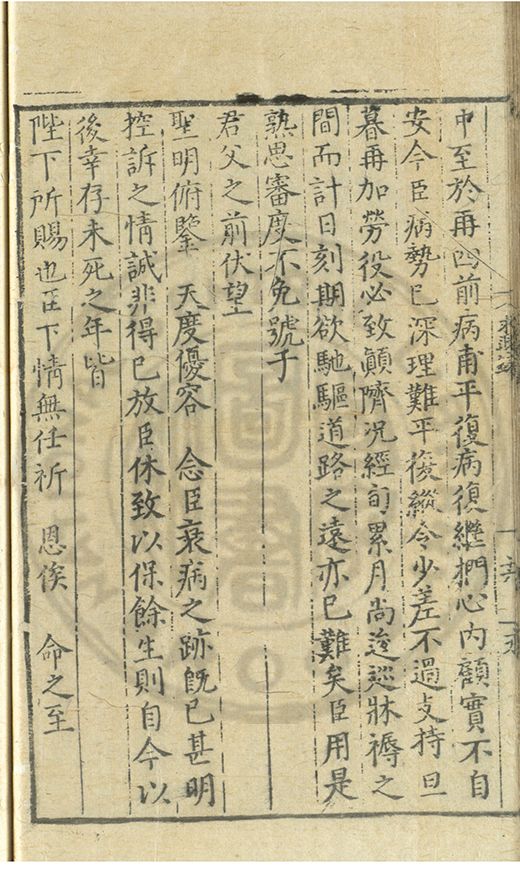 中至於再四前病甫平復病復繼捫心內顧實不自
安今臣病勢已深理難平復縱令少差不過支持旦
暮再加勞役必致顛隮況經旬累月尚逡巡牀褥之
間而計日刻期欲馳驅道路之遠亦已難矣臣用是
熟思審度不免號于
君父之前伏望
聖明俯鑒　天度優容　念臣衰病之跡旣已甚明
控訴之情誠非得已放臣休致以保餘生則自今以
後幸存未死之年皆
陛下所賜也臣下情無任祈　恩俟　命之至